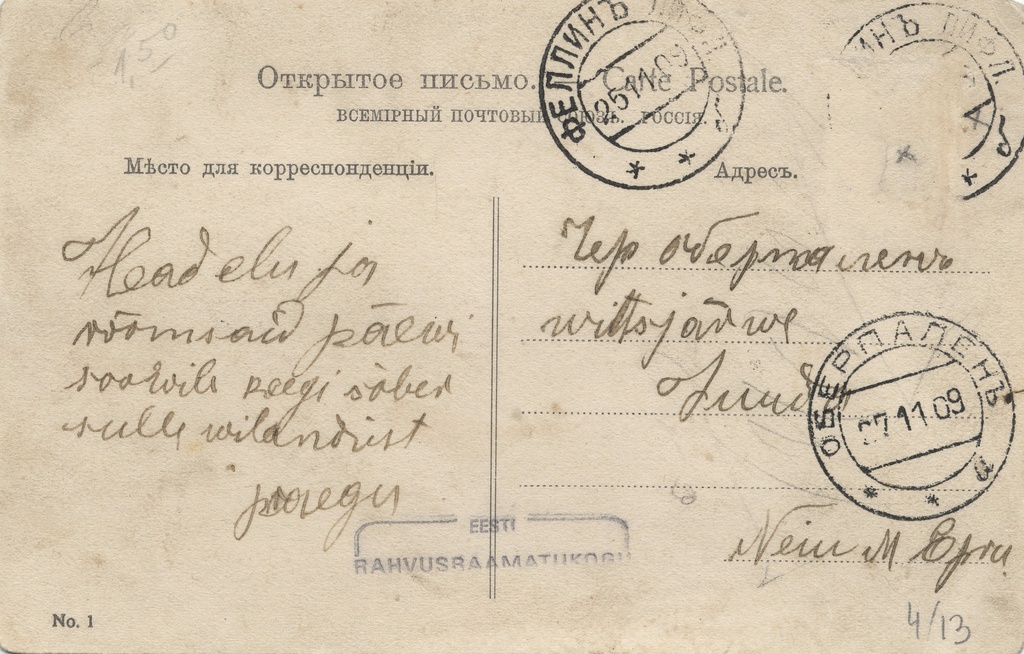 1,50
Открытое письмо. Carte Postale.
ВСЕМІРНЫЙ ПОЧТОВЫЙ СОЮЗЪ. РОССІЯ.
Мѣсто для корреспонденціи.
Адресъ.
ФЕЛЛИНЪ ЛИФЛ.
25 11 09
ИНЪ ЛИФЛ.
Head elu ja
rõõmsaid päewi
soowib keegi sõber
sulle wilandist
praegu
Чер оберпаленъ
wiltsjärwe
ОБЕРПАЛЕНЪ
07 11 09
а
EESTI
RAHVUSRAAMATUKOGU
No. 1
4/13